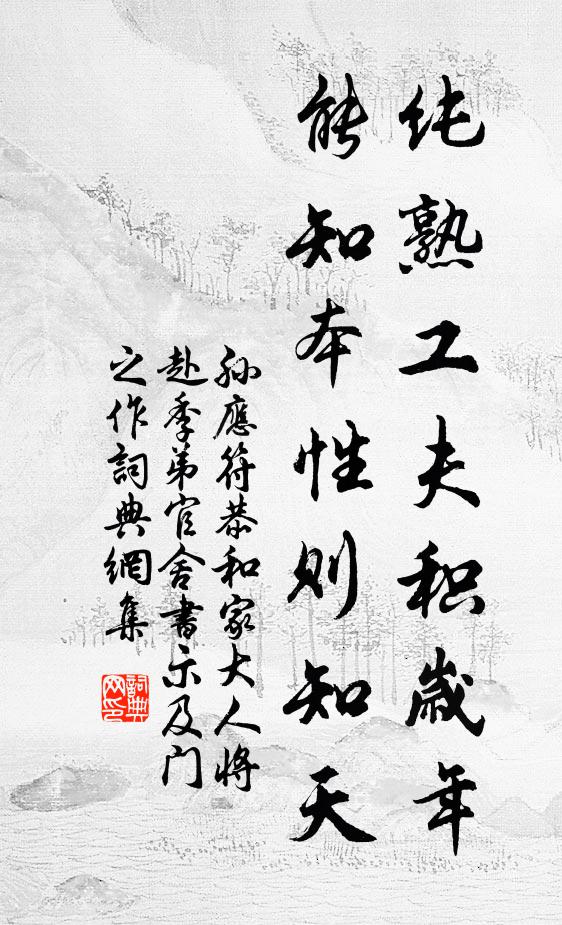 纯熟工夫积歲年
能知本性则知天
孙應符恭和家大人将
赴季弟官舍書示及门
之作詞典網集
詞典
网印